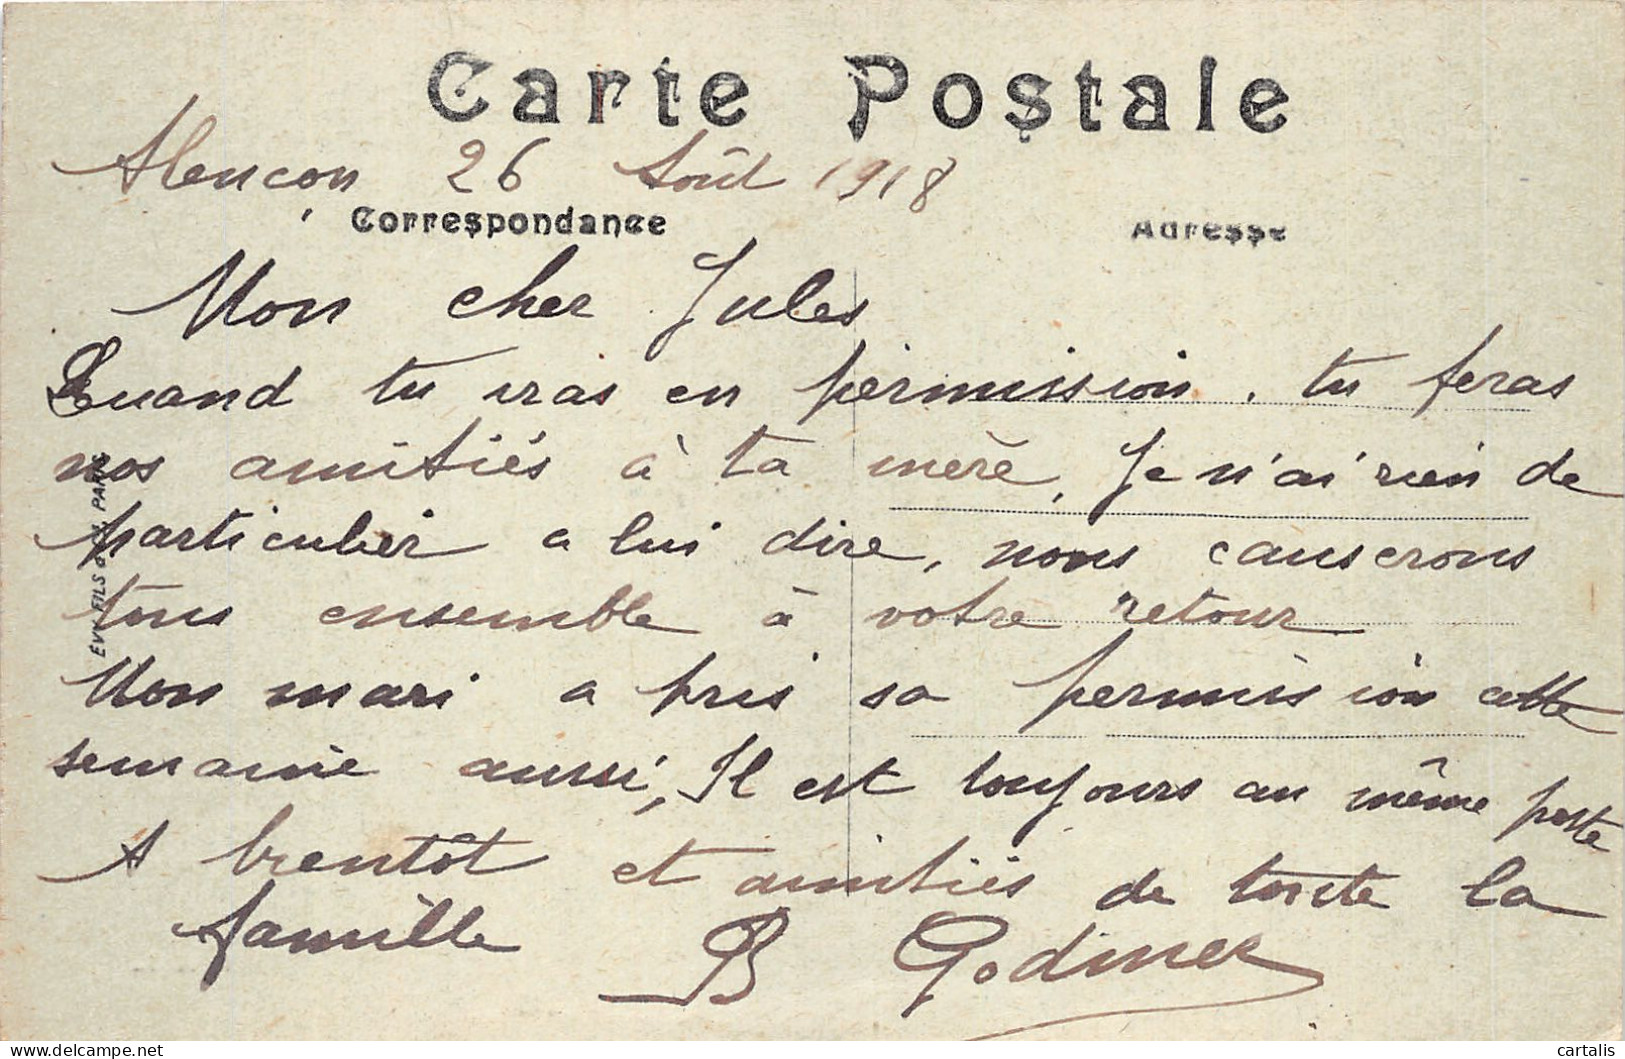 Carte Postale
Alençon 26 Août 1918
Correspondance
Adresse
Mon cher Jules
Quand tu iras en permission. tu feras
nos amitiés à ta mère, Je n'ai rien de
particulier a lui dire, nous causerons
tous ensemble à votre retour.
Mon mari a pris sa permission cette
semaine aussi, Il est toujours au même poste
A bientôt et amitiés de toute la
famille B Godinez
FILS PARIS
cartalis